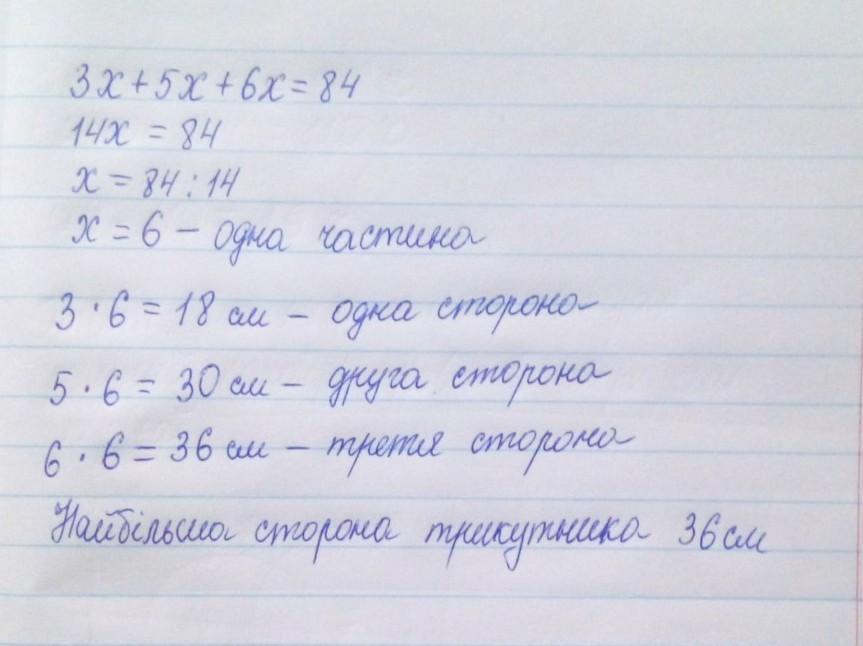 3x+5x+6x=84
14x = 84
x = 84 : 14
x = 6 – одна частина
3 · 6 = 18 см – одна сторона
5 · 6 = 30 см – друга сторона
6 · 6 = 36 см – третя сторона
Найбільша сторона трикутника 36 см